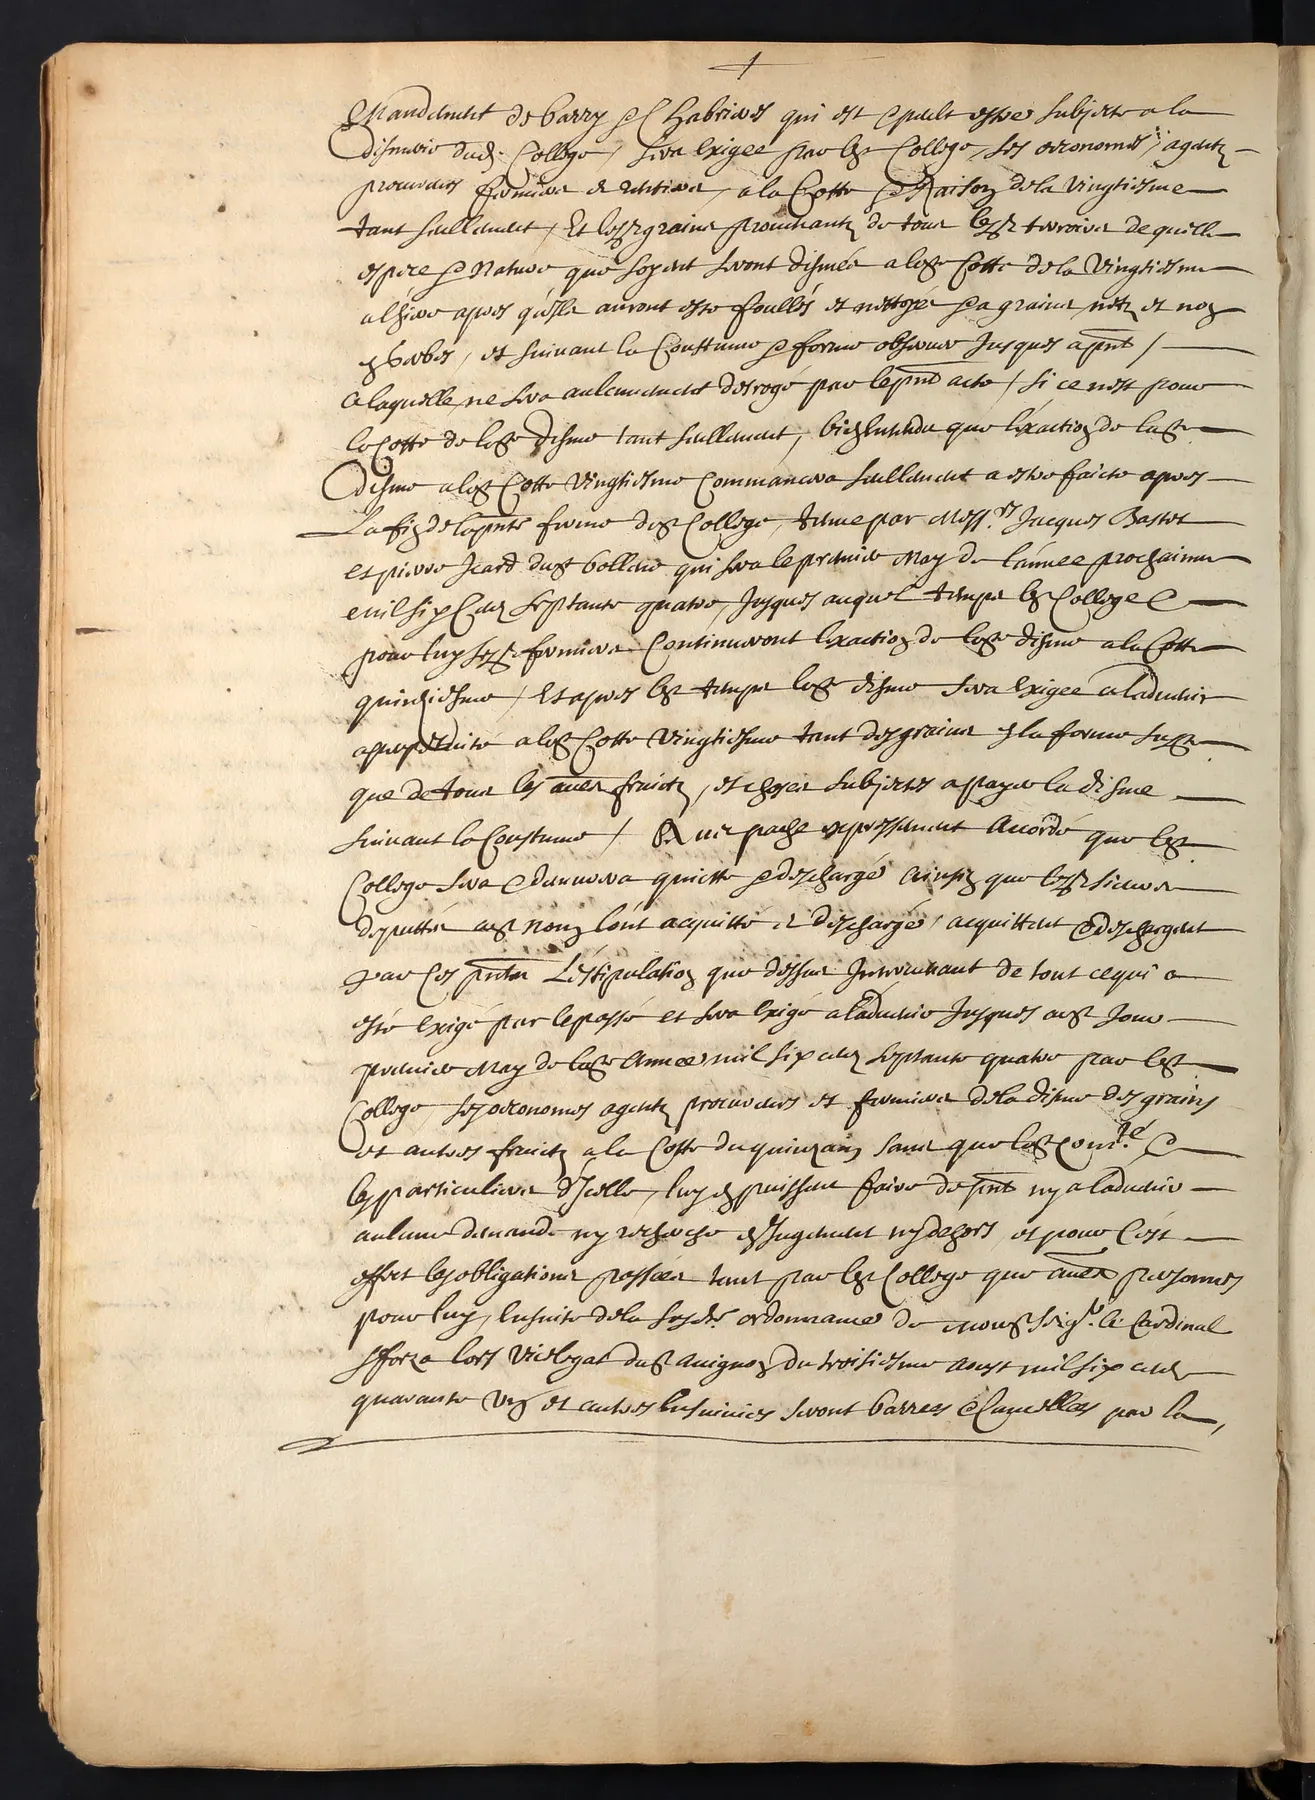 Mandement de barry et Chabrieres qui est et peult estre subjecte a la
dismerie dud. College, sera exigee par led College, ses oeconomes, agentz
procureurs fermiers et rentiers, a la Cotte et Raison de la vingtiesme
tant seullement, Et lesd grains provenantz de tous lesd terroirs de quelle
espece et Nature que soyent seront dismés a lad Cotte de la vingtiesme
a l'hiere apres qu'ilz auront esté foullés et nettoyé et a grains netz et non
en Gerbes, et suivant la Coustume et forme observee Jusques a pnt /
a laquelle ne sera aulcunement desrogé par le pnt acte / si ce n'est pour
la Cotte de lad disme tant seullement, bien entendu que l'exaction de lad
disme a lad Cotte vingtiesme Commancera seullement a estre faicte apres
La fin de la pnte ferme dud College, tenue par Mess.rs Jacques Bastet
et pierre Jcard dud bollene qui sera le premier May de l'année prochaine
mil six Cens septante quatre, Jusques auquel temps led College et
pour luy sesd fermiers Continueront l'exaction de lad disme a la Cotte
quinziesme / Et apres led temps lad disme sera exigee a l'advenir
a perpetuité a lad Cotte vingtiesme tant des grains en la forme susd
que de tous les aues fruictz, et choses subjectes a payer la disme
suivant la Coustume / De pache expressement Accordé que led
College sera et demurera quicte et deschargé ainsin que lesd sieurs
deputtés aud nom l'ont acquitté et deschargé, acquittent et deschargent
par Ces pntes L'estipulation que dessus Jntervenant de tout ce qui a
esté exigé par le passé et sera exigé a l'advenir Jusques aud Jour
premier May de lad Année mil six cens septante quatre par led
College ses oeconomes agentz procureurs et fermiers de la disme des grains
et autres fruictz a la Cotte du quinzain sans que lad Com.té et
les particuliers d'Jcelle, luy en puissent faire de pnt ny a l'advenir
aulcune demande ny recherche en Jugement ny dehors, et pour C'est
effect les obligations passées tant par led College que aues personnes
pour luy, ensuite de la susd.e ordonnance de Monseig.r le Cardinal
Sforza lors vicelegat dud Avignon du troisiesme Aoust mil six cens
quarante un et autres ensuivies seront barrees et Cancellees par la,